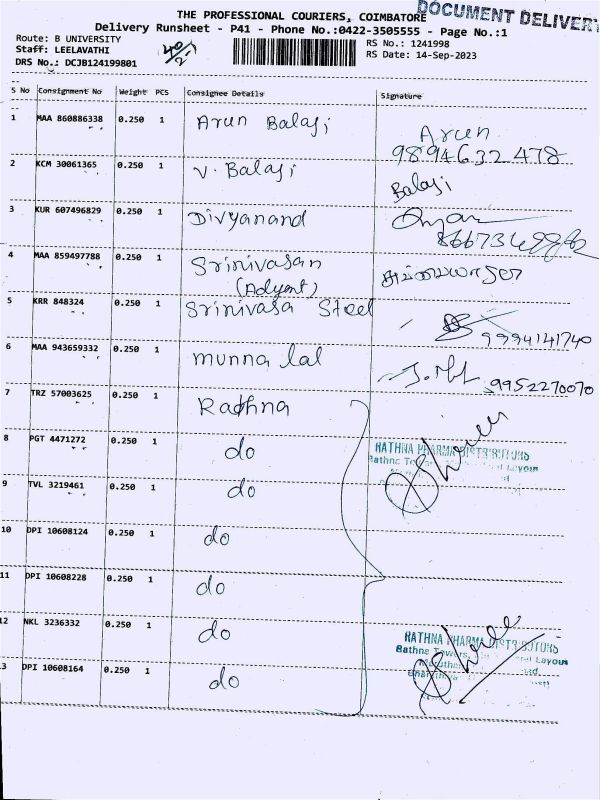 THE PROFESSIONAL COURIERS, COIMBATORE
DOCUMENT DELIVERY
Delivery Runsheet - P41 - Phone No.:0422-3505555 - Page No.:1
Route: B UNIVERSITY
RS No.: 1241998
Staff: LEELAVATHI
RS Date: 14-Sep-2023
DRS No.: DCJB124199801
S No Consignment No Weight PCS Consignee Details Signature
1 MAA 860886338 0.250 1 Arun Balaji Arun
9894632478
2 KCM 30061365 0.250 1 V. Balaji Balaji
3 KUR 607496829 0.250 1 Divyanand
4 MAA 859497788 0.250 1 Srinivasan
(Adyant)
5 KRR 848324 0.250 1 Srinivasa Steel 9994141740
6 MAA 943659332 0.250 1 munna lal 9952270070
7 TRZ 57003625 0.250 1 Rathna
8 PGT 4471272 0.250 1 do
RATHNA PHARMA DISTRIBUTORS
9 TVL 3219461 0.250 1 do
10 DPI 10608124 0.250 1 do
11 DPI 10608228 0.250 1 do
12 NKL 3236332 0.250 1 do
RATHNA PHARMA DISTRIBUTORS
Rathna Towers,
13 DPI 10608164 0.250 1 do